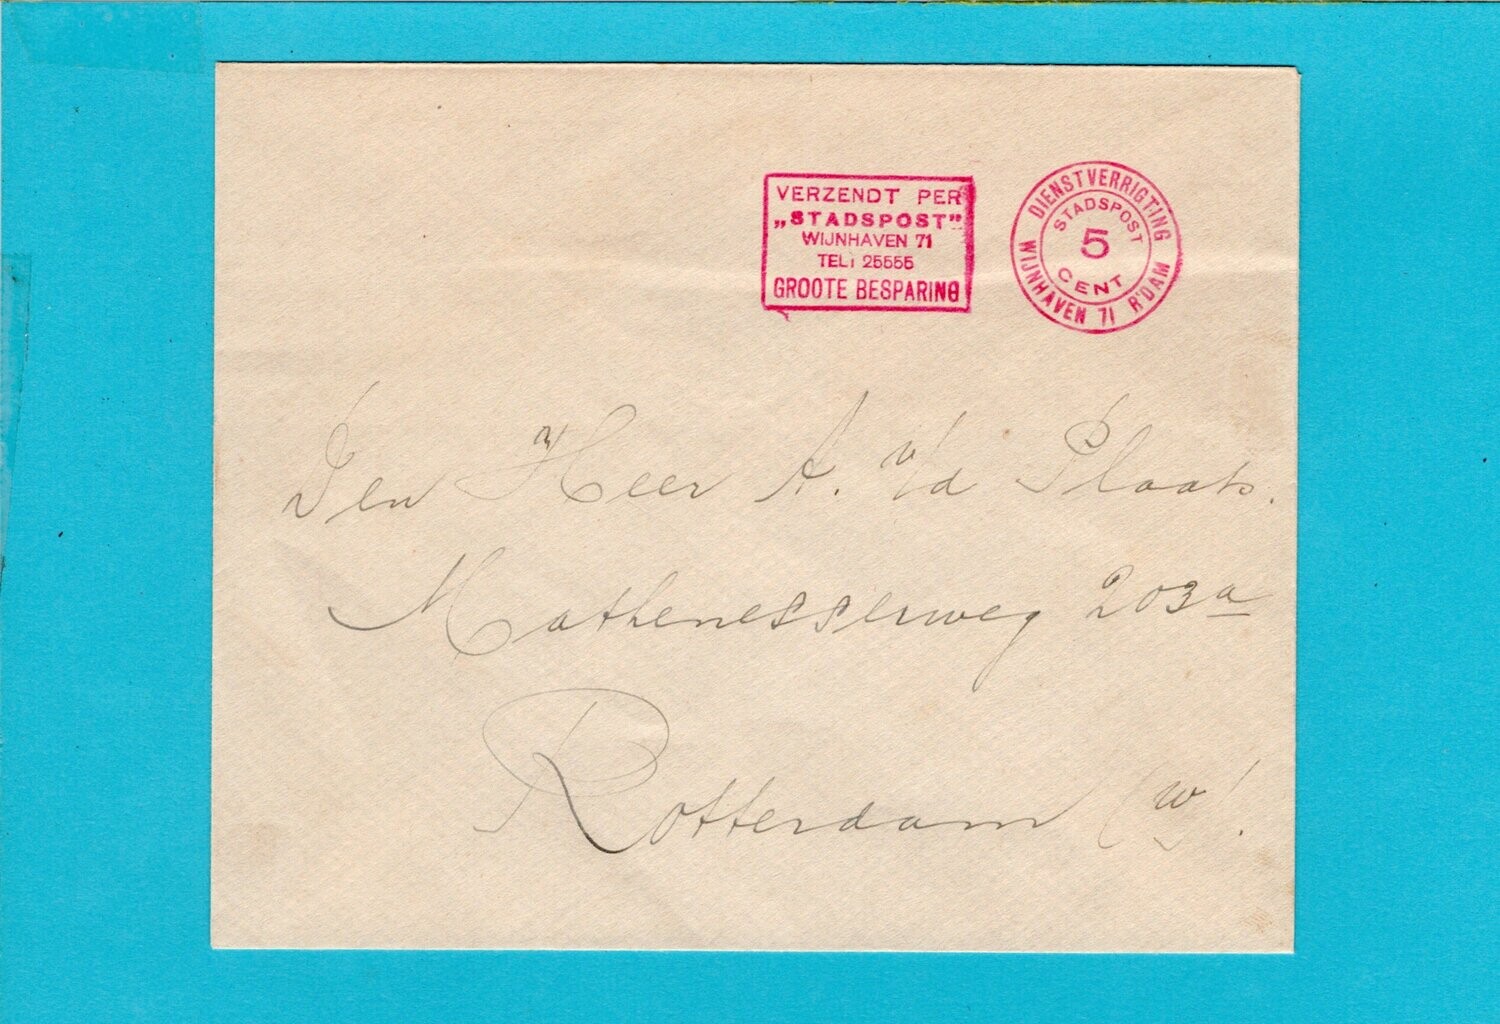 VERZENDT PER
„STADSPOST"
WIJNHAVEN 71
TEL: 25555
GROOTE BESPARING
DIENSTVERRIGTING
STADSPOST
5
CENT
WIJNHAVEN 71 R'DAM
Den Heer A. v/d Plaats.
Mathenesserweg 203a
Rotterdam (W).